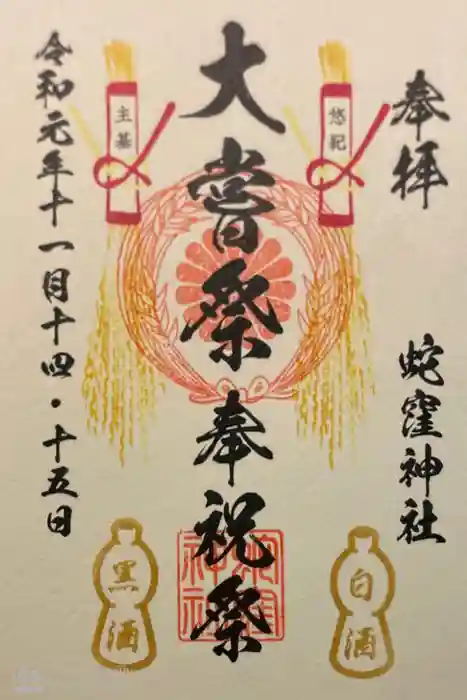 奉拝
蛇窪神社
悠紀
大嘗祭奉祝祭
主基
令和元年十一月十四・十五日
白酒
黒酒